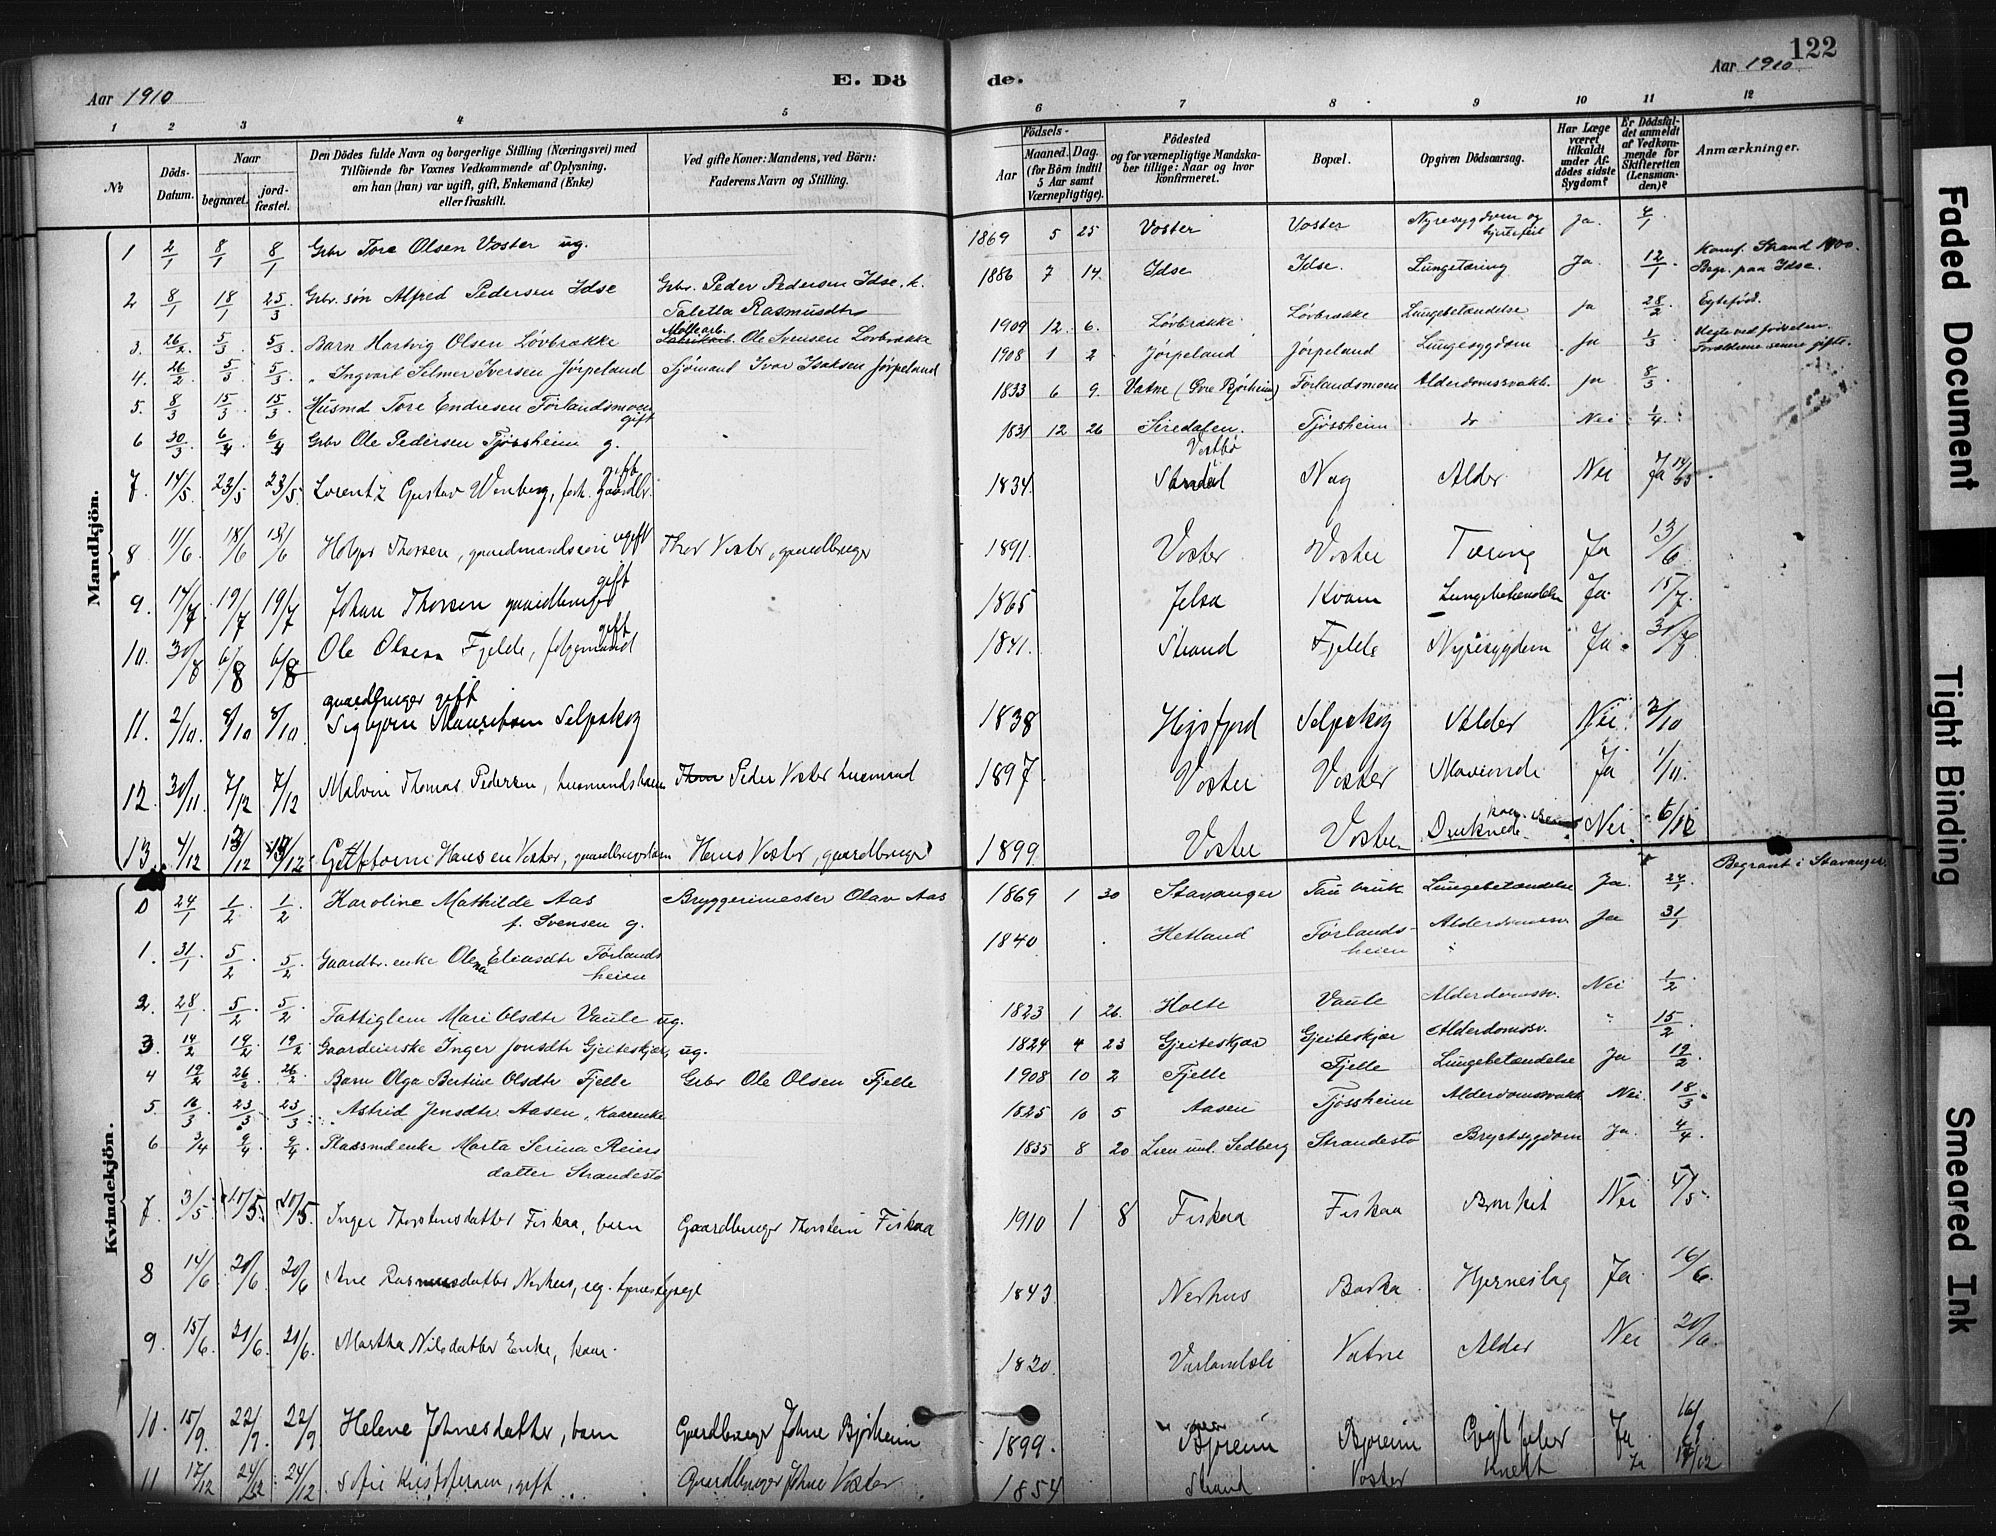 122
Aar 1910
E. Dö
de.
Aar 1910
1 2 3 4 5
6 7 8 9 10 11 12
№
Döds-Datum.
Naar
begravet.
jord-fæstet.
Den Dödes fulde Navn og borgerlige Stilling (Næringsvei) med
Tilföiende for Voxnes Vedkommende af Oplysning,
om han (hun) var ugift, gift, Enkemand (Enke)
eller fraskilt.
Ved gifte Koner: Mandens, ved Börn:
Faderens Navn og Stilling.
Födsels-
Aar
Maaned. Dag.
(for Börn indtil
5 Aar samt
Værnepligtige).
Födested
og for værnepligtige Mandska-
ber tillige: Naar og hvor
konfirmeret.
Bopæl.
Opgiven Dödsaarsag.
Har Læge
været
tilkaldt
under Af-
dödes sidste
Sygdom?
Er Dödsfal-
det anmeldt
af Vedkom-
mende for
Skifteretten
(Lensman-
den)?
Anmærkninger.
Mandkjön.
1 2/1 8/1 8/1 Grbr Tore Olsen Voster ug. 1869 5 25 Voster Voster Nyresygdom og hjertefeil Ja 4/1
2 8/1 18/1 25/3 Grbr. søn Alfred Pedersen Idse Grbr. Peder Pedersen Idse. h. Taletta Rasmusdtr 1886 7 14. Idse Idse. Lungetæring Ja 12/1 Konf. Strand 1900. Begr. paa Idse.
3. 26/2 5/3 5/3 Barn Hartvig Olsen Løvbrække Ole Svensen Løvbrække 1909 12. 6. Løvbrække Løvbrække Lungebetændelse ja 28/2 Egtefød.
4. 26/2 5/3 5/3 " Ingvart Selmer Iversen Jørpeland Sjømand Ivar Isaksen Jørpeland 1908 1 2 Jørpeland Jørpeland Lungesygdom ja 1/3 Uegte ved fødselen. Forældrene senere gifte.
5. 8/3 15/3 15/3 Husmd Tore Endresen Førlandsmoen gift 1833 6 9. Vatne (Øvre Bjørheim) Førlandsmoen Alderdomssvakh. ja 8/3
6 30/3 6/4 6/4 Grbr Ole Pedersen Tjøssheim g. 1831 12 26 Siredalen. Tjøssheim do Nei 1/4
7. 14/5 23/5 23/5 Lorentz Gustav Wenberg, forh. gaardbr. gift 1834. Vestbø Strand Nag Alder Nei Ja 14/5
8 11/6 18/6 18/6 Holger Thorsen, gaardmandssøn ugift Thor Voster, gaardbruger 1891. Voster Voster Tæring Ja 13/6
9. 14/7 19/7 19/7 Johan Thorsen gaardbruger gift 1865 Jelsa Kvam Lungebetændelse Ja 15/7
10. 30/7 6/8 6/8 Ole Olsen Fjelde, føgemand gift 1841. Strand Fjelde Nyresygdom Ja 30/7
11. 2/10 8/10 8/10 gaardbruger gift Sigbjørn Mauritsen Selpskog 1838 Høgsfjord Selpskog Alder Nei 3/10
12 30/11 7/12 7/12 Malvin Thomas Pedersen, husmandsbarn Peder Voster husmand 1897. Voster Voster Mavionde Ja 1/11.
13. 4/12 13/12 13/12 Hansen Voster, gaardbrugerbarn Hans Voster, gaardbruger 1899. Voster Voster Druknede Nei 6/12
Kvindekjön.
0 24/1 1/2 1/2 Karoline Mathilde Aas f. Svensen g. Bryggerimester Olav Aas 1869 1 30 Stavanger Tau bruk Lungebetændelse Ja 24/1 Begravet i Stavanger.
1. 31/1 5/2 5/2 Gaardbr. enke Olena Eliasdtr Førlandsheien 1840 Hetland Førlandsheien Alderdomssv. Ja 31/1
2. 28/1 5/2 5/2 Fattiglem Mari Olsdtr Vaule ug. 1823 1 26. Holte Vaule Alderdomssv. Nei 1/2
3. 14/2 19/2 19/2 Gaardeierske Inger Jonsdtr Gjeiteskjær, ug. 1824 4 23 Gjeiteskjær Gjeiteskjær Alderdomssv. " 15/2
4 19/2 26/2 26/2 Barn Olga Bertine Olsdtr Fjelle Grbr Ole Olsen Fjelle 1908 10 2 Fjelle Fjelle Lungebetændelse Ja 19/2
5. 16/3 23/3 23/3 Astrid Jensdtr. Aasen, Kaarenke 1825 10 5 Aasen Tjøssheim Alderdomssvakh Nei 18/3
6 3/4 9/4 9/4 Plassmdenke Marta Serina Reiersdatter Strandestø 1835 8 20 Lien unl. Sedberg Strandestø Brystsygdom Ja. 4/4.
7. 3/5 10/5 10/5 Inger Thorstensdatter Fiskaa, barn Gaardbruger Thorstein Fiskaa 1910 1 8 Fiskaa Fiskaa Bronkit Nei 4/5
8 14/6 20/6 20/6 Ane Rasmusdatter Nerhus, ug. 1843 Nerhus Barka Hjerneslag Ja 16/6
9 15/6 21/6 21/6 Martha Nilsdatter Enke, kaar. 1820 Vatne Alder Nei 20/6
10. 15/9 22/9 22/9 Helene Johnesdatter, barn Gaardbruger Johne Bjørheim 1899. Bjøreim Bjøreim Ja 16/9
11 17/12 24/12 24/12 Sofie Kristofersen, gift Gaardbruger Johne Voster 1854 Strand Voster Kreft Ja 17/12
Faded Document
Tight Binding
Smeared Ink